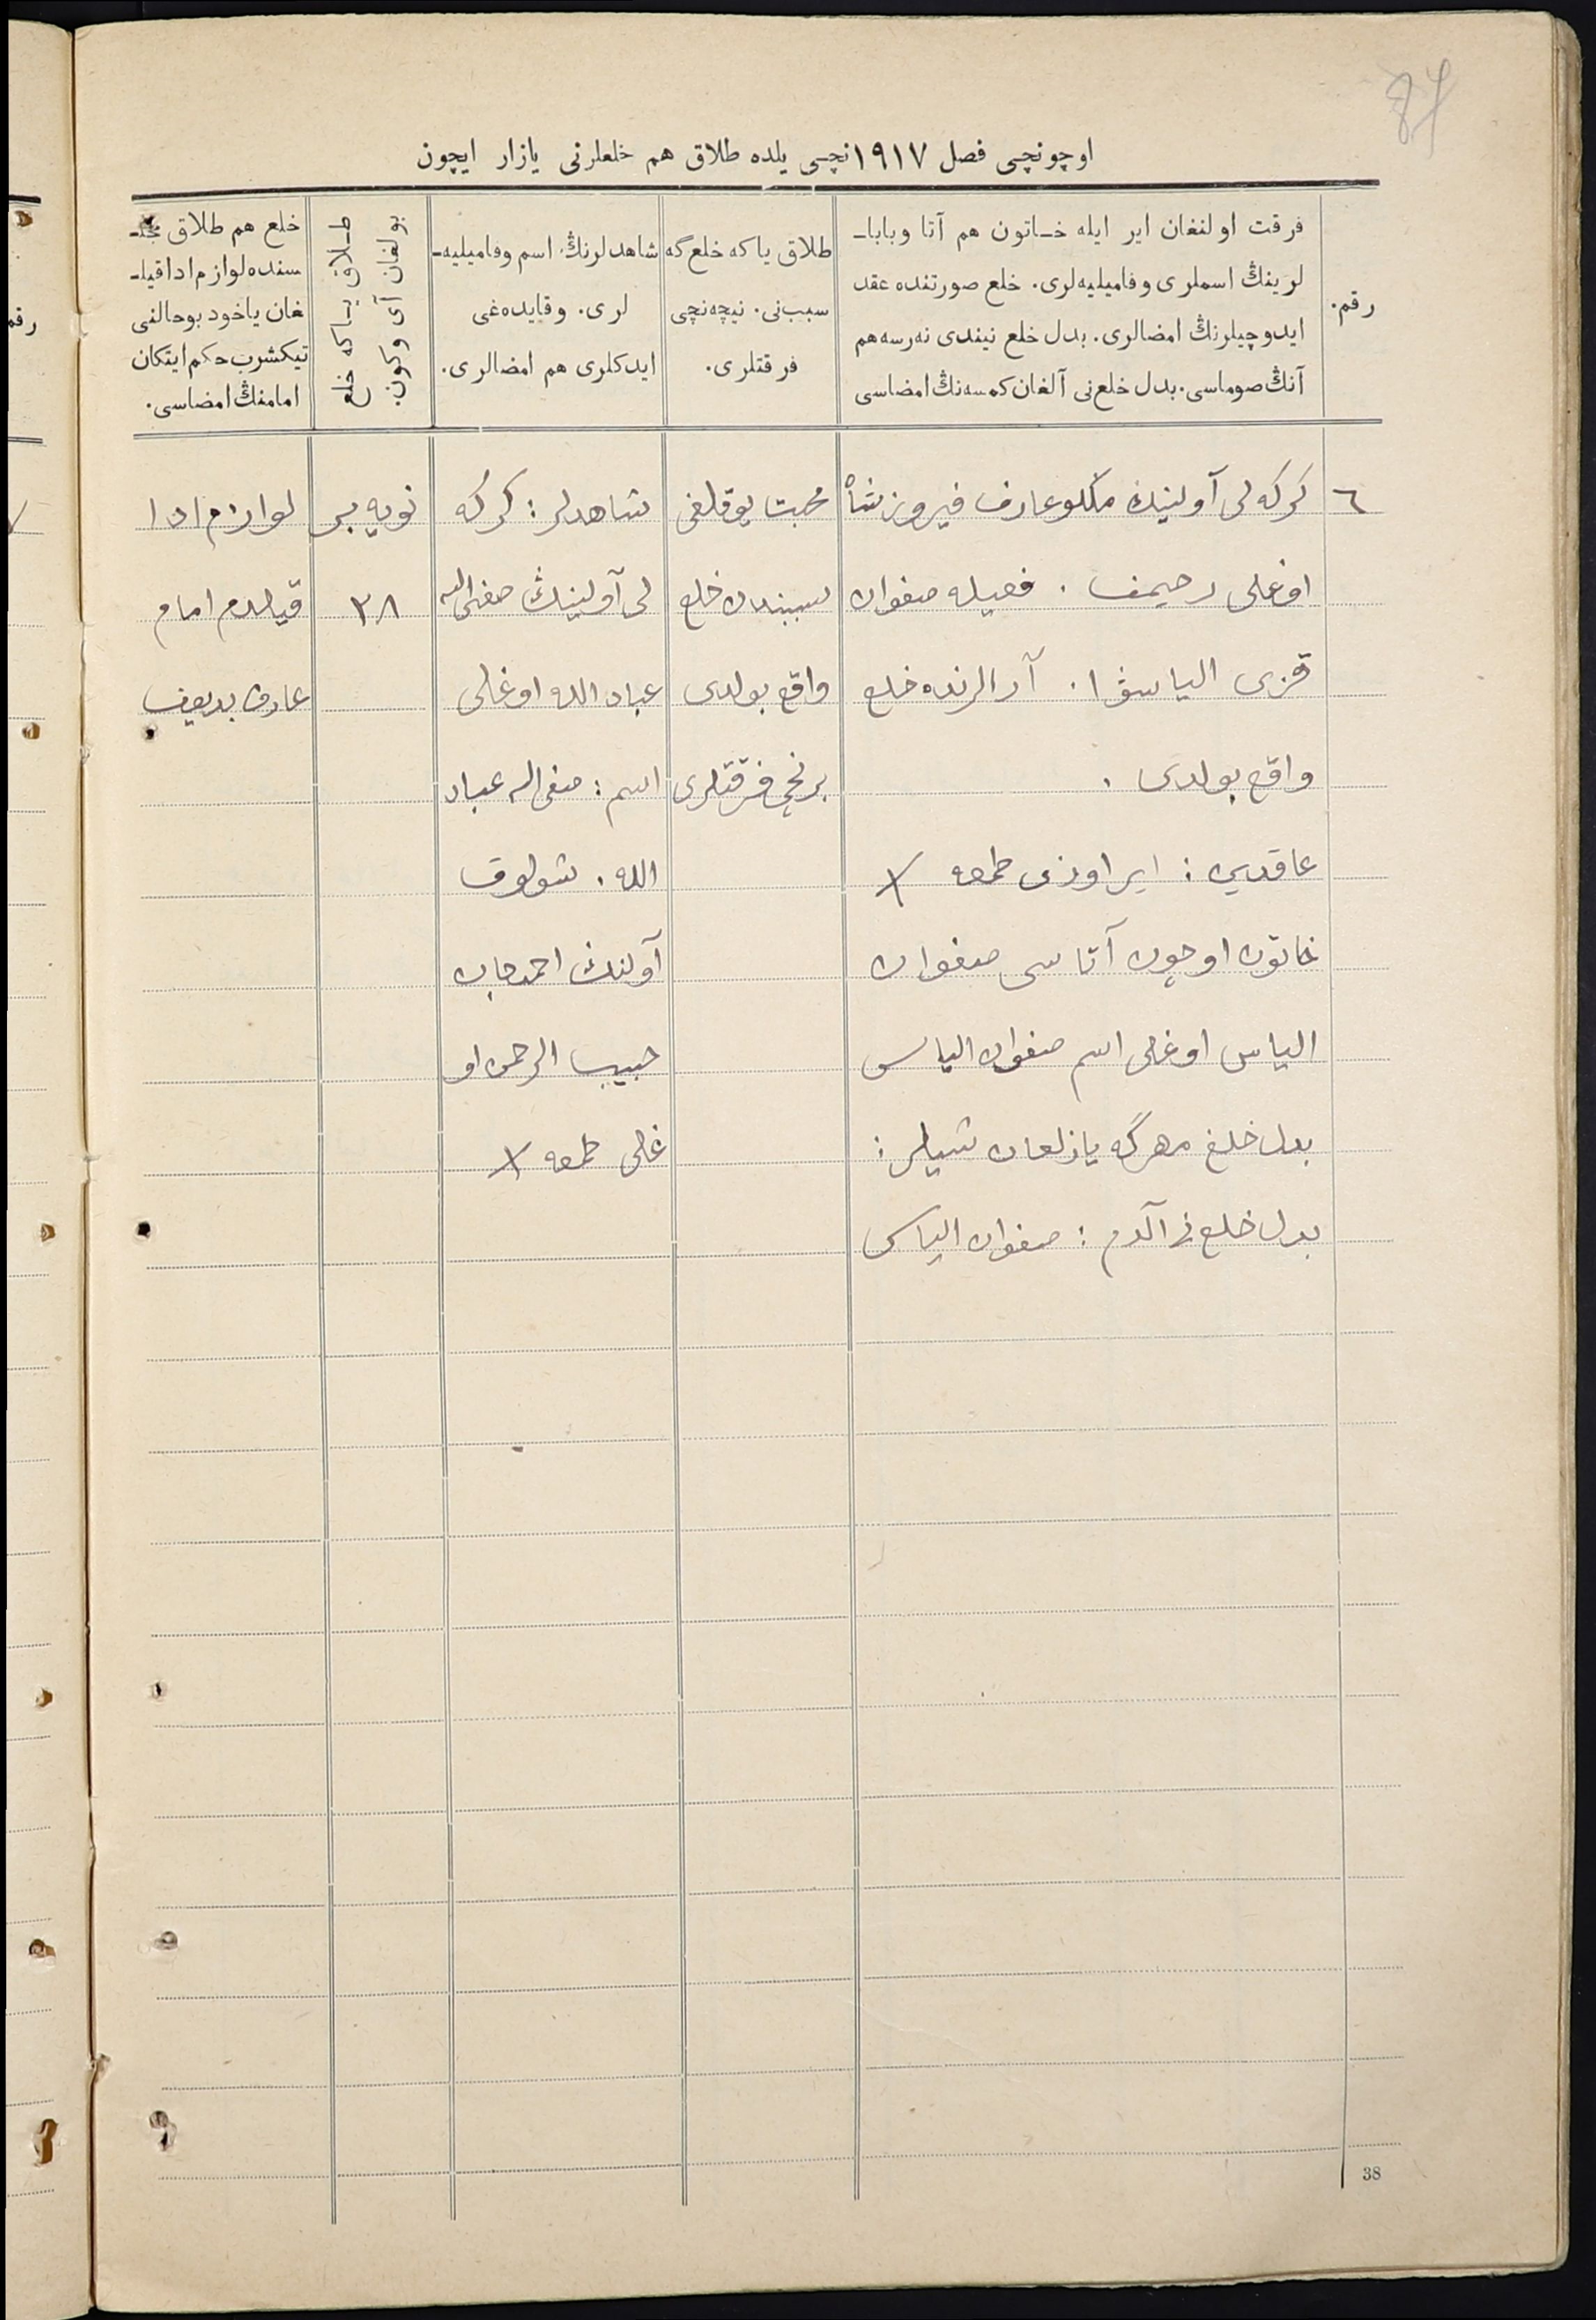 84
اوچونچی فصل ١٩١٧نچی یلده طلاق هم خلعلرنی یازار ایچون
رقم.
فرقت اولنغان ایر ایله خاتون هم آتا وبابا-
لرینڭ اسملری وفامیلیه‌لری. خلع صورتنده عقد
ایدوچیلرنڭ امضالری. بدل خلع نیندی نه‌رسه هم
آنڭ صوماسی. بدل خلع‌نی آلغان کمسه‌نڭ امضاسی
طلاق یاکه خلع گه
سبب‌نی. نیچه‌نچی
فرقتلری.
شاهدلرنڭ اسم وفامیلیه-
لری. وقایده‌غی
ایدکلری هم امضالری.
طلاق یاکه خلع
بولغان آی وکون
خلع هم طلاق
سنده لوازم ادا قیلـ
غان یاخود بو حالنی
تیکشرب حکم ایتکان
امامنڭ امضاسی.
٦
کرکه لی آولینڭ عارف فیروزشاه
اوغلی رحیمف . صفوان
قزی الیاسفا . آرالرنده خلع
واقع بولدی .
عاقدین : ایر اوزی طمعه
خاتون اوچون آتاسی صفوان
الیاس اوغلی اسم صفوان الیاس
بدل خلع مهرگه یازلغان شیلر :
بدل خلع نی آلدم : صفوان الیاس
محبت یوقلغی
سببندن خلع
واقع بولدی
برنچی فرقتلری
شاهدلر : کرکه
لی آولینڭ صفی الله
عباد الله اوغلی
اسم : صفی الله عباد
الله . شولوق
آولنڭ احمدجان
حبیب الرحمن او
غلی طمعه
نویه بر
٢٨
لوازم ادا
قیلدم امام
عارف بدیعف
38